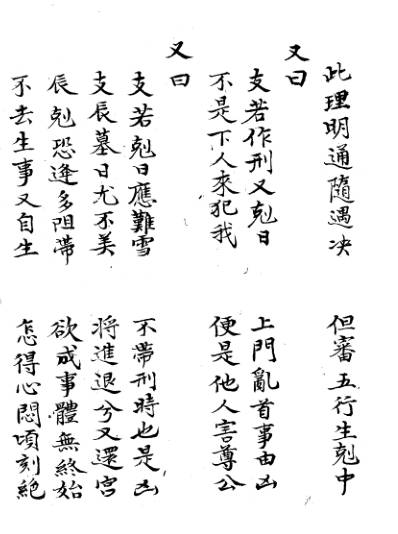 此理明通隨遇决　但審五行生剋中
又曰
支若作刑又剋日　上門亂首事由凶
不是下人來犯我　便是他人害尊公
又曰
支若剋日應難雪　不帶刑時也是凶
支辰墓日尤不美　將進退兮又還宮
辰剋恐逢多阻滯　欲成事體無終始
不去生事又自生　怎得心悶頃刻絕